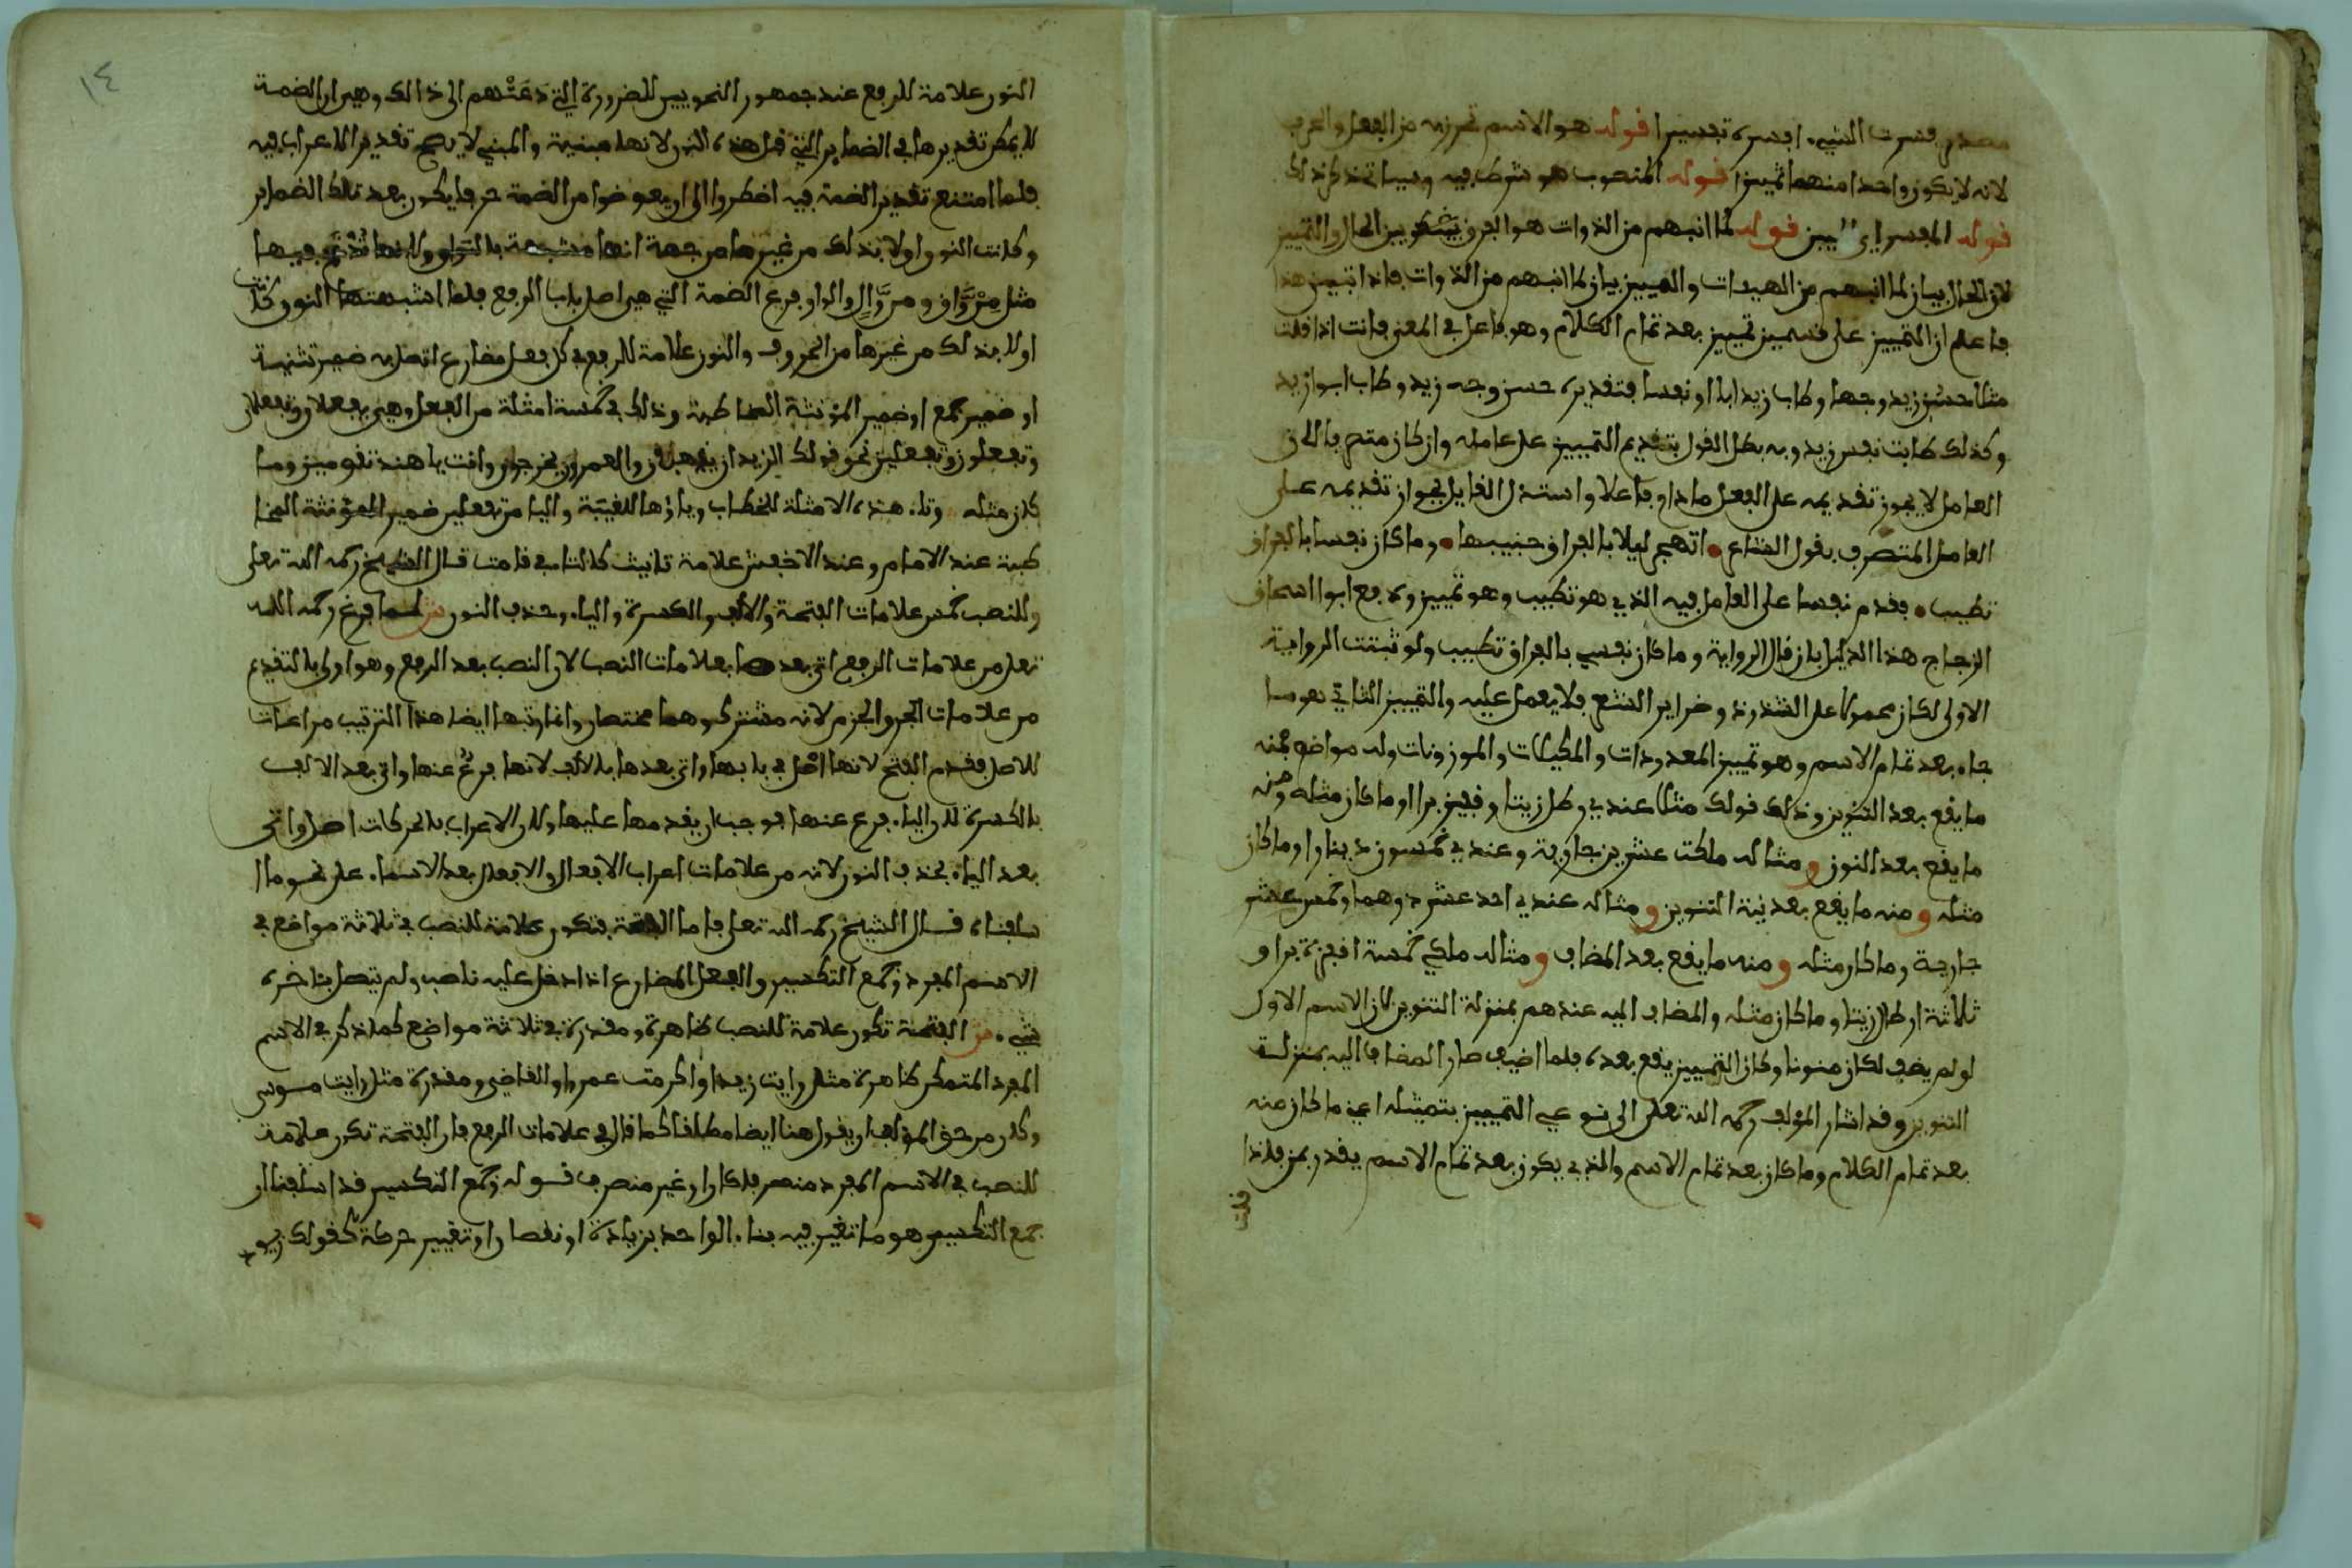 مصدر فسرت الشيء افسره تفسيرا قوله هو الاسم تحرز به من الفعل والحرف
لانه لا يكون واحدا منهما تمييزا قوله المنصوب هو شرط فيه وسياتي ذكر ذلك
قوله المفسر اي المبين قوله لما انبهم من الذوات هو الفرق بين الحال والتمييز
لان الحال بيان لما انبهم من الهيئات والتمييز بيان لما انبهم من الذوات فاذا تبين هذا
فاعلم ان التمييز على قسمين تمييز بعد تمام الكلام وهو فاعل في المعنى فانت اذا قلت
مثلا حسن زيد وجها وطاب زيد ابا او نفسا فتقديره حسن وجه زيد وطاب ابو زيد
وكذلك طابت نفس زيد وبه بطل القول بتقديم التمييز على عامله وان كان متصرفا لان
العامل لا يجوز تقديمه على الفعل مادام فاعلا واستدل القايل بجواز تقديمه على
العامل المتصرف بقول الشاعر اتهجر ليلا بالفراق حبيبها وما كان نفسا بالفراق
تطيب فقدم نفسا على العامل فيه الذي هو تطيب وهو تمييز ودفع ابو اسحاق
الزجاج هذا الدليل بان قال الرواية وما كان نفسي بالفراق تطيب ولو ثبتت الرواية
الاولى لكان محمولا على الشذوذ وضراير الشعر فلا يعمل عليه والتمييز الثاني هو ما
جاء بعد تمام الاسم وهو تمييز المعدودات والمكيلات والموزونات وله مواضع فمنه
ما يقع بعد التنوين وذلك قولك مثلا عندي رطل زيتا وقفيز برا او ما كان مثله ومنه
ما يقع بعد النون ومثاله ملكت عشرين جارية وعندي خمسون دينارا وما كان
مثله ومنه ما يقع بعد نية التنوين ومثاله عندي احد عشر درهما وخمس عشر
جارية وما كان مثله ومنه ما يقع بعد المضاف ومثاله ملكي خمسة اقفزة برا و
ثلاثة ارطال زيتا وما كان مثله والمضاف اليه عندهم بمنزلة التنوين لان الاسم الاول
لو لم يضف لكان منونا وكان التمييز يقع بعده فلما اضيف صار المضاف اليه بمنزلة
التنوين وقد اشار المؤلف رحمه الله تعلى الى نوعي التمييز بتمثيله اعني ما كان منه
بعد تمام الكلام وما كان بعد تمام الاسم والذي يكون بعد تمام الاسم يقدر بمن فاذا
قلت
١٤
النون علامة للرفع عند جمهور النحويين للضرورة التي دعتهم الى ذالك وهي ان الضمة
لا يمكن تقديرها في الضماير التي قبل هذه النون لانها مبنية والمبني لا يصح تقدير الاعراب فيه
فلما امتنع تقدير الضمة فيه اضطروا الى ان يعوضوا من الضمة حرفا يكون بعد تلك الضماير
وكانت النون اولا بذلك من غيرها من جهة انها مشبهة بالواو ولانها تدغم فيها
مثل من واق ومن وال والواو فرع الضمة التي هي اصل باب الرفع فلما اشبهتها النون كانت
اولا بذلك من غيرها من الحروف والنون علامة للرفع في كل فعل مضارع اتصل به ضمير تثنية
او ضمير جمع او ضمير المؤنثة المخاطبة وذلك في خمسة امثلة من الفعل وهي يفعلان وتفعلان
وتفعلون وتفعلين نحو قولك الزيدان يذهبان والعمرون يخرجون وانت يا هند تقومين وما
كان مثله وتاء هذه الامثلة للخطاب وياؤها للغيبة والياء من تفعلين ضمير المؤنثة المخا
طبة عند الامام وعند الاخفش علامة تانيث كالتاء في قامت قال الشيخ رحمه الله تعلى
وللنصب خمس علامات الفتحة والالف والكسرة والياء وحذف النون ش لما فرغ رحمه الله
تعلى من علامات الرفع اتى بعدها بعلامات النصب لان النصب بعد الرفع وهو اولى بالتقديم
من علامات الجر والجزم لانه مشترك وهما مختصان وانما رتبها ايضا هذا الترتيب مراعات
للاصل فقدم الفتح لانها اصل في بابها واتى بعدها بالالف لانها فرع عنها واتى بعد الالف
بالكسرة لان الياء فرع عنها فوجب ان يقدمها عليها ولان الاعراب بالحركات اصل واتى
بعد الياء بحذف النون لانه من علامات اعراب الافعال والافعال بعد الاسماء على نحو ما
سلفناه قال الشيخ رحمه الله تعلى فاما الفتحة فتكون علامة للنصب في ثلاثة مواضع في
الاسم المفرد وجمع التكسير والفعل المضارع اذا دخل عليه ناصب ولم يتصل بئاخره
شيء ش الفتحة تكون علامة للنصب ظاهرة ومقدرة في ثلاثة مواضع كما ذكر في الاسم
المفرد المتمكن ظاهرة مثل رايت زيدا واكرمت عمرا والقاضي ومقدرة مثل رايت موسى
وكان من حق المؤلف ان يقول هنا ايضا مطلقا كما قال في علامات الرفع فان الفتحة تكون علامة
للنصب في الاسم المفرد منصرفا كان او غير منصرف قوله وجمع التكسير قد اسلفنا ان
جمع التكسير هو ما تغير فيه بناء الواحد بزيادة او نقصان او تغيير حركة كقولك زيو